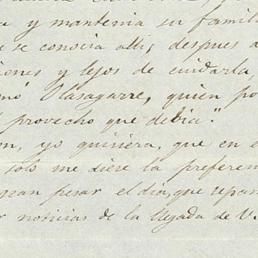 a y mantenia su famil
e se conocia alli, despues a
iones y lejos de cuidarla,
mó Olasagarre, quien po
l provecho que debia".
on, yo quisiera, que en e
solo me diese la preferen
gran pesar el dia, que repar
r noticias de la llegada de V.